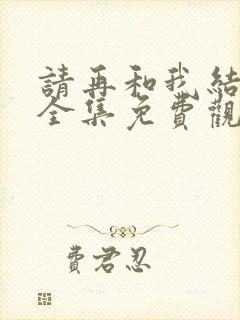 請再和我結
全集免費觀
費君忍